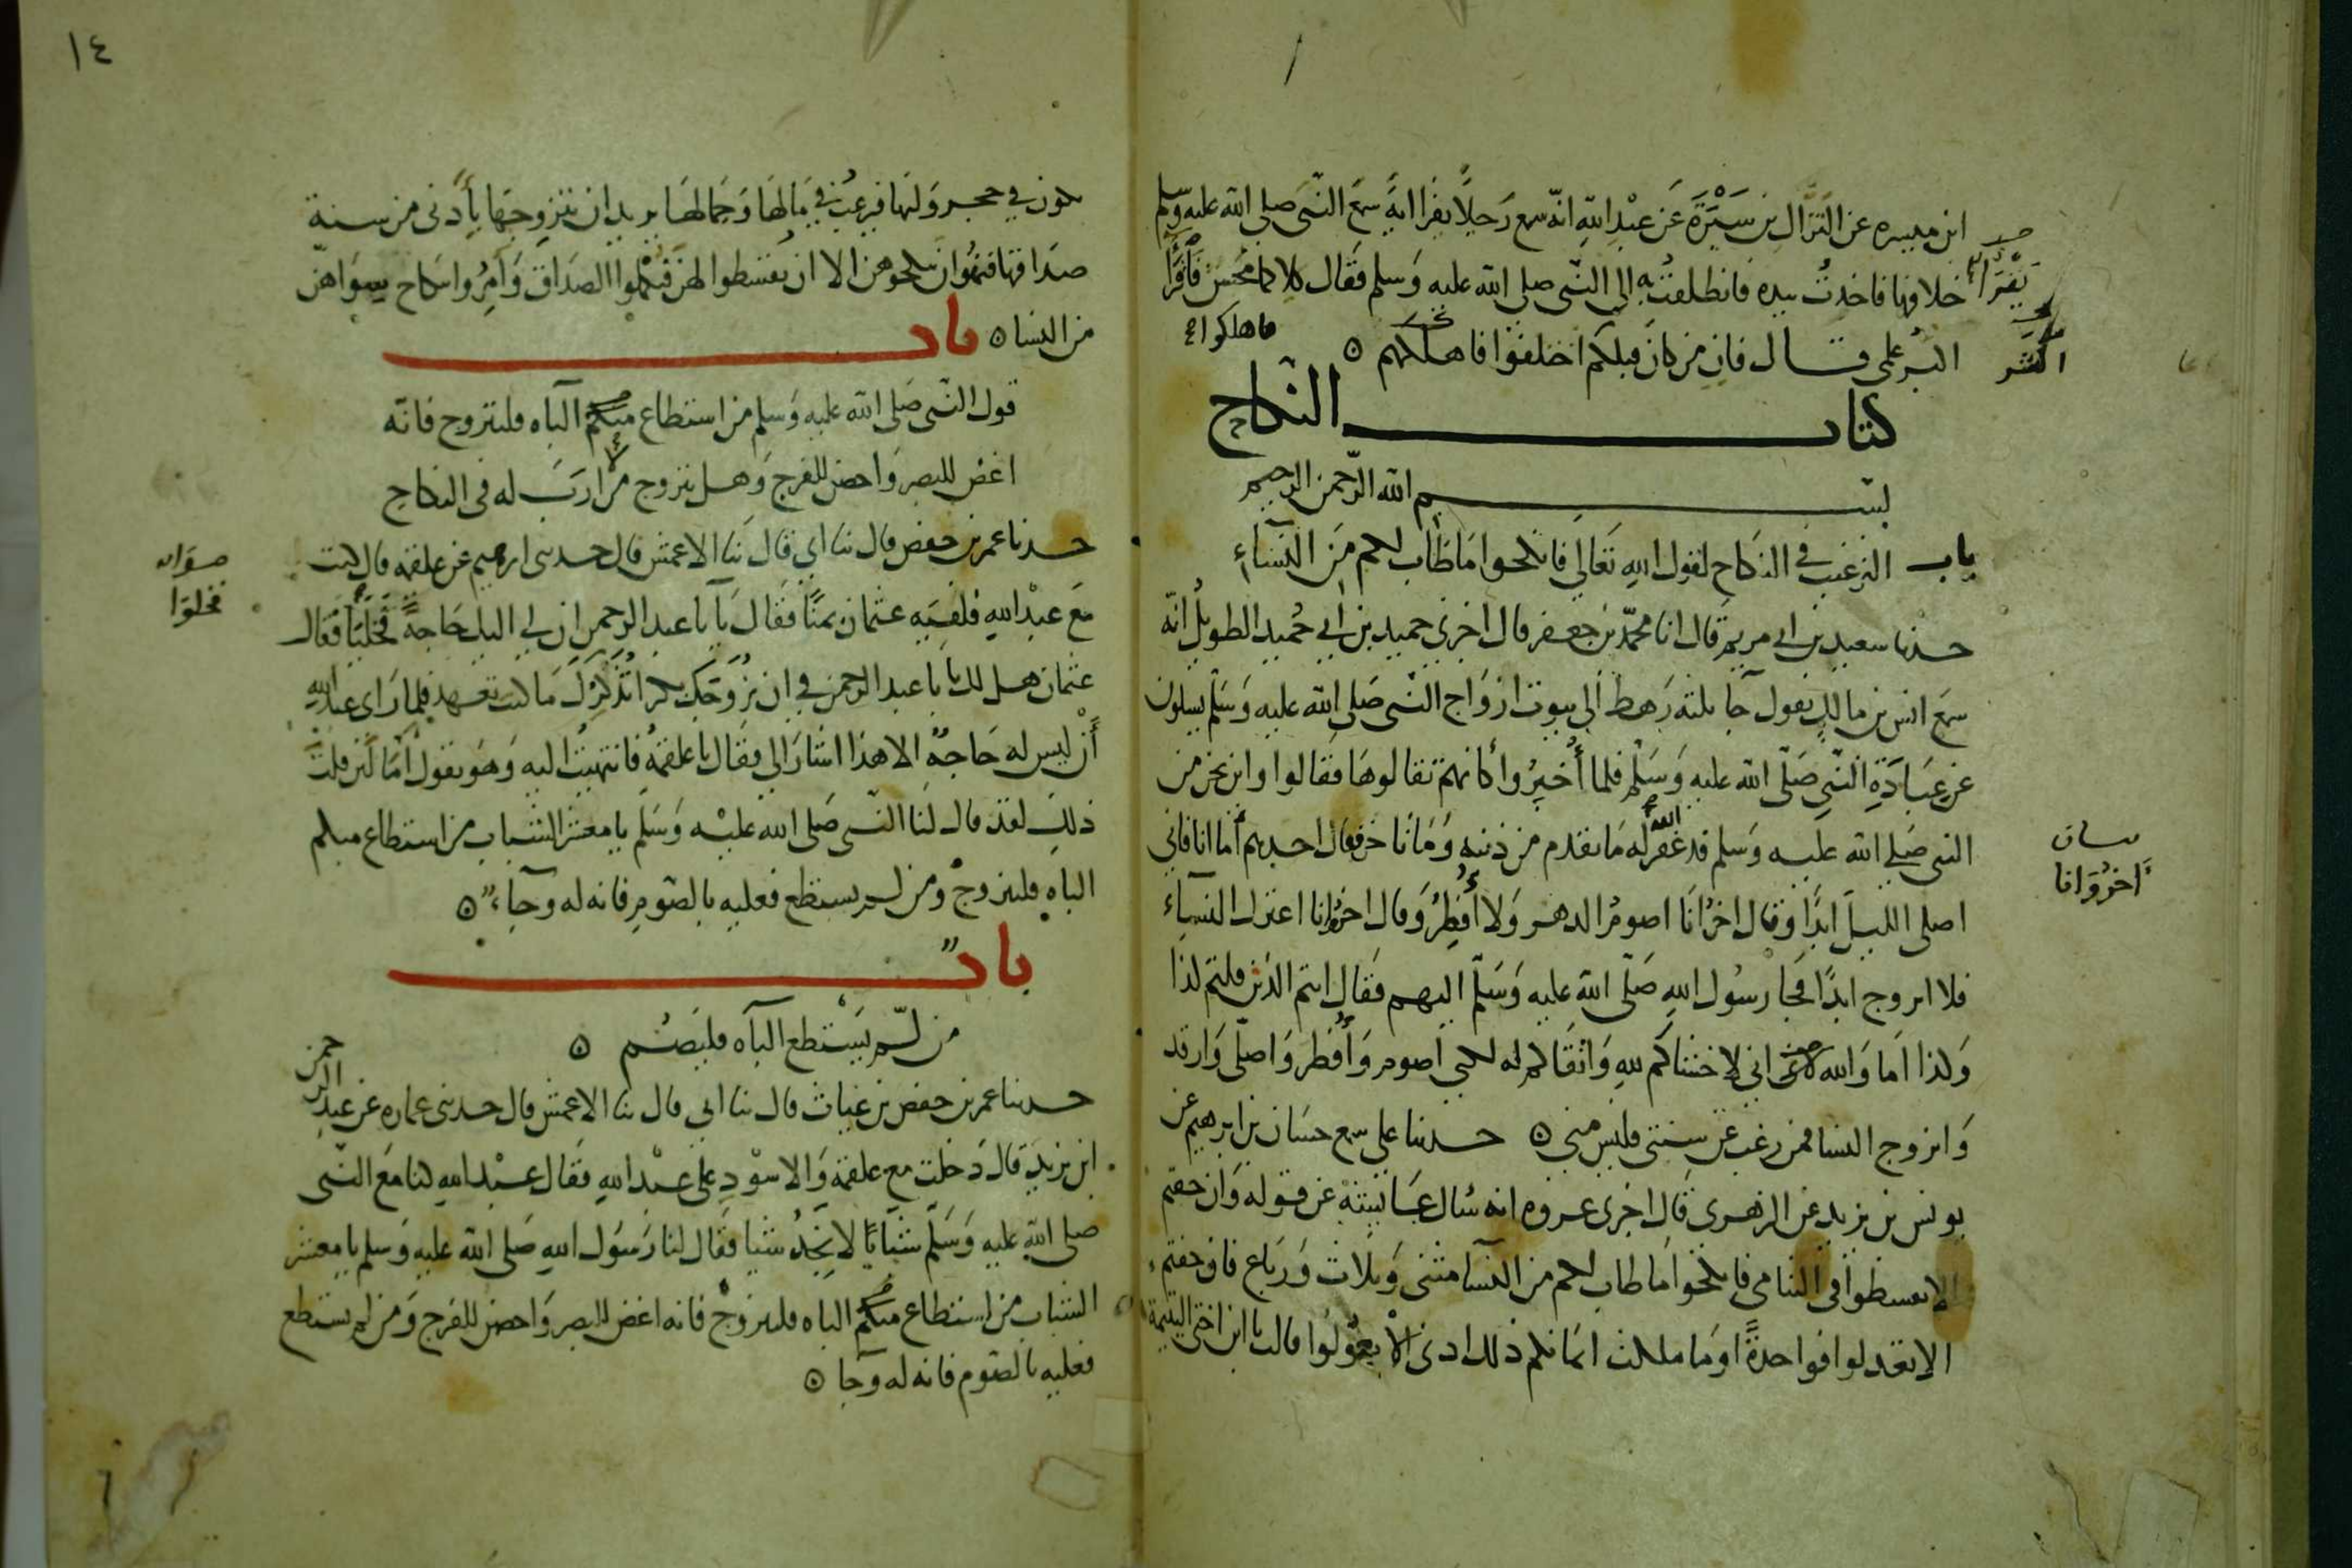 ابن ميسره عن النَزَّال بن سَبْرَةَ عَن عبْدِ اللّهِ انّه سمع رَجلاً يقرَا ايةً سمعَ النّبى صلى الله عليه وسلم
يَقْرَأُ
خلافها فاخذتُ بيده فانطلقتُ به الى النّبى صلى الله عليه وَسلم فقَال كلاكما محْسِن فَاقْرَأَا
اكْثَر
البرُ علمى قال فانِ من كانَ قبلكم اختلفوا فاهلكهم ٥
فاهلكوا
كتاب النّكاح
بسم الله الرّحمن الرحيم
باب الترغيب في النكاح لقول الله تَعَالى فانكحوا مَا طَاب لكم مِنَ النّساءِ
حدثنا سعيد بن ابى مريم قال انا محمّد بن جعفر قال اخبرنى حميد بن ابى حُميد الطويلُ انّه
سمع انس بن مالك يقول جا ثلثة رَهط الى بيوت ازوَاج النّبى صَلى الله عليه وَسَلم يسلون
عن عبَادَةِ النّبىِ صَلّى الله عليه وَسَلم فلما أُخبِرُوا كانهم تقالوهَا فقَالوا واين نحن من
النبى صَلى الله عليه وَسلم قد غفرَ اللهُ له مَا تقدم من ذنبه وَمَا تاخر فقال احدهم أَما انا فانى
اصلى الليلَ ابدًا وقال اخرُ انَا اصومُ الدهر وَلا أُفْطِرُ وَقال اخرُ انا اعتزل النسآءَ
آخرُ وَانا
فلا اتزوج ابدًا فجا رسُول اللهِ صَلّى الله عليه وَسَلّم اليهم فقَال انتم الذين قلتم كذا
وَكذا اَما وَالله انى لاخشاكم لله وَاتقَاكم له لكنى اصوم وَأُفطر وَاصلّى وَارقد
وَاتزوج النسا فمن رغب عن سنتى فليس منى ٥ حدثنا على سمع حسَان بن ابرهيم عن
يونس بن يزيد عن الزهرى قال اخبرنى عروه انه سُال عَايشَة عن قوله وَان خفتم
الا تقسطوا فى اليتامى فانكحوا مَا طاب لكم من النّسا مثنى وَثلاث وَرباع فان خفتم
الا تعدلوا فواحدةً اوما ملكت ايمانكم ذلك ادنى الا تعُولوا قالت يا ابن اختى اليتيمة
١٤
تكون في حجر وَليّها فيرغبُ في مَالهَا وَجَمالهَا يريد ان يتزوجهَا بأَدنى من سنة
صدَاقها فنهُوا انْ ينكحوهن الا ان يقسطوا لهن فيُكملوا الصدَاق وَامِرُوا بنكاح سِوَاهنّ
من النسا ٥ باب
قول النّبى صَلى الله عليه وَسلم من استطاع منكم البآه فليتزوج فانّه
اغضُ للبصر وَاحصن للفرج وَهل يتزوج من لا ارَبَ له فى النكاح
حدثنا عمر بن حفص قال ثنا ابى قال ثنا الاعمش قال حدثنى ابرهيم عن علقمه قال كنت
مَعَ عبْد اللهِ فلقيَه عثمَان بمنًا فقَال يَآبا عبد الرحمن ان لى اليك حَاجةً فخلَيَا فقَال
فخلَوَا
عثمان هل لك يا با عبد الرحمن فى ان نُزَوجَك بكرا تُذَكِّرُكَ مَا كنت تعهد فلما رَاى عبد الله
أَنْ ليس له حَاجةٌ الا هذا اشارَ الى فقَال يا علقمهُ فانتهيتُ اليه وَهوَ يقول أَمَا لئن قلتَ
ذلِك لقد قال لَنا النّبى صَلى الله عليْه وَسَلم يا معشر الشباب من استطاع منكم
الباهَ فليتزوجْ ومن لم يستطع فعليه بالصّومِ فانه له وجآء ٥
بابٌ
من لّم يَسْتطع البآه فليَصُم ٥
حدثنا عمر بن حفص بن غياث قال ثنا ابى قال ثنا الاعمش قال حدثنى عماره عن عبد الرحمن
ابن يزيدَ قال دَخلت مع علقمة وَالاسْوَدِ على عبْد اللهِ فقَال عبْد اللهِ كنا مَعَ النّبى
صلى الله عليه وَسَلّم شبَابًا لا نَجدُ شيا فقَال لنا رَسوُل اللهِ صَلى الله عليه وَسلم يا معشر
الشباب من استطاع منكُم الباه فليتزوجْ فانه اغض للبصر وَاحصن للفرج وَمن لم يستطع
فعليه بالصّوم فانه له وجآ ٥